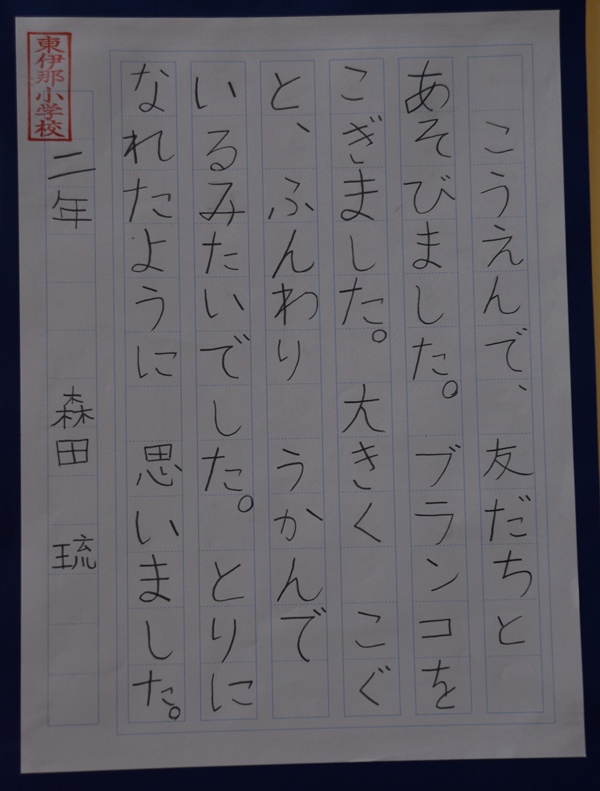 こうえんで、友だちと
あそびました。ブランコを
こぎました。大きく こぐ
と、ふんわり うかんで
いるみたいでした。とりに
なれたように 思いました。
東伊那小学校
二年 森田 琉